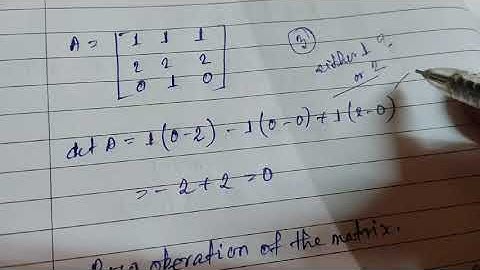 A = [ 1 1 1
2 2 2
0 1 0 ]
3
either 1
or 2
det A = 1(0-2) - 1(0-0) + 1(2-0)
= -2+2 = 0
operation of the matrix.